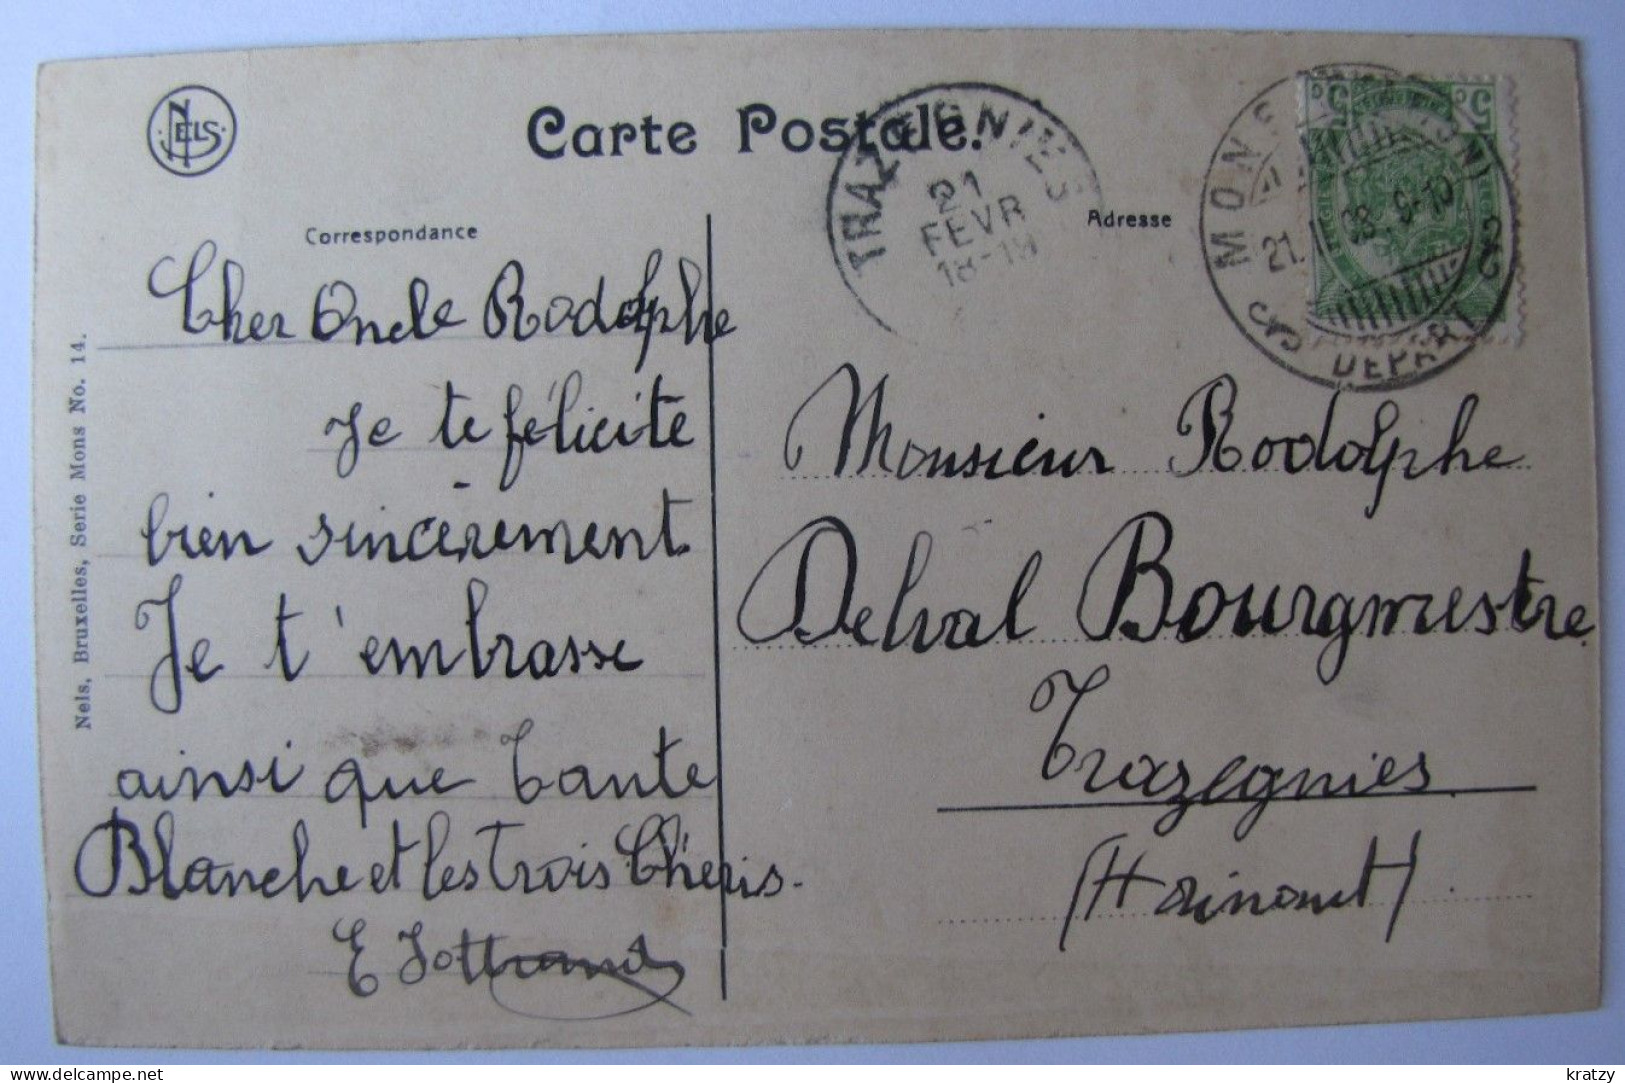 NELS
Carte Postale.
TRAZEGNIES
21
FEVR
18-19
MONS
DEPART
Correspondance
Adresse
Nels, Bruxelles, Serie Mons No. 14.
Cher Oncle Rodolphe
Je te félicite
bien sincèrement.
Je t'embrasse
ainsi que Tante
Blanche et les Trois Chéris.
E Jottrand
Monsieur Rodolphe
Delval Bourgmestre
Trazegnies
(Hainaut)
kratzy